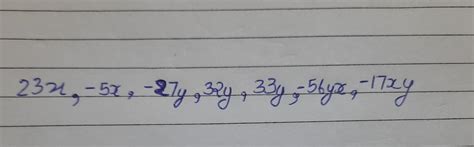 23x, -5x, -27y, 32y, 33y, -56yx, -17xy